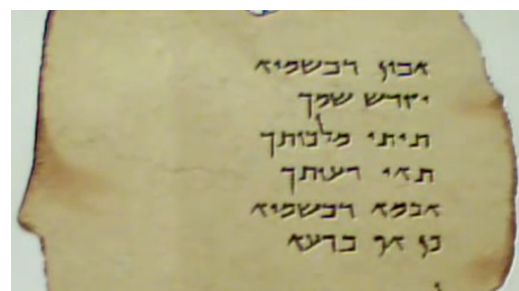 אבון דבשמיא
יקדש שמך
תיתי מלכותך
תאי רעותך
אכמא דבשמיא
כן אף ברעא